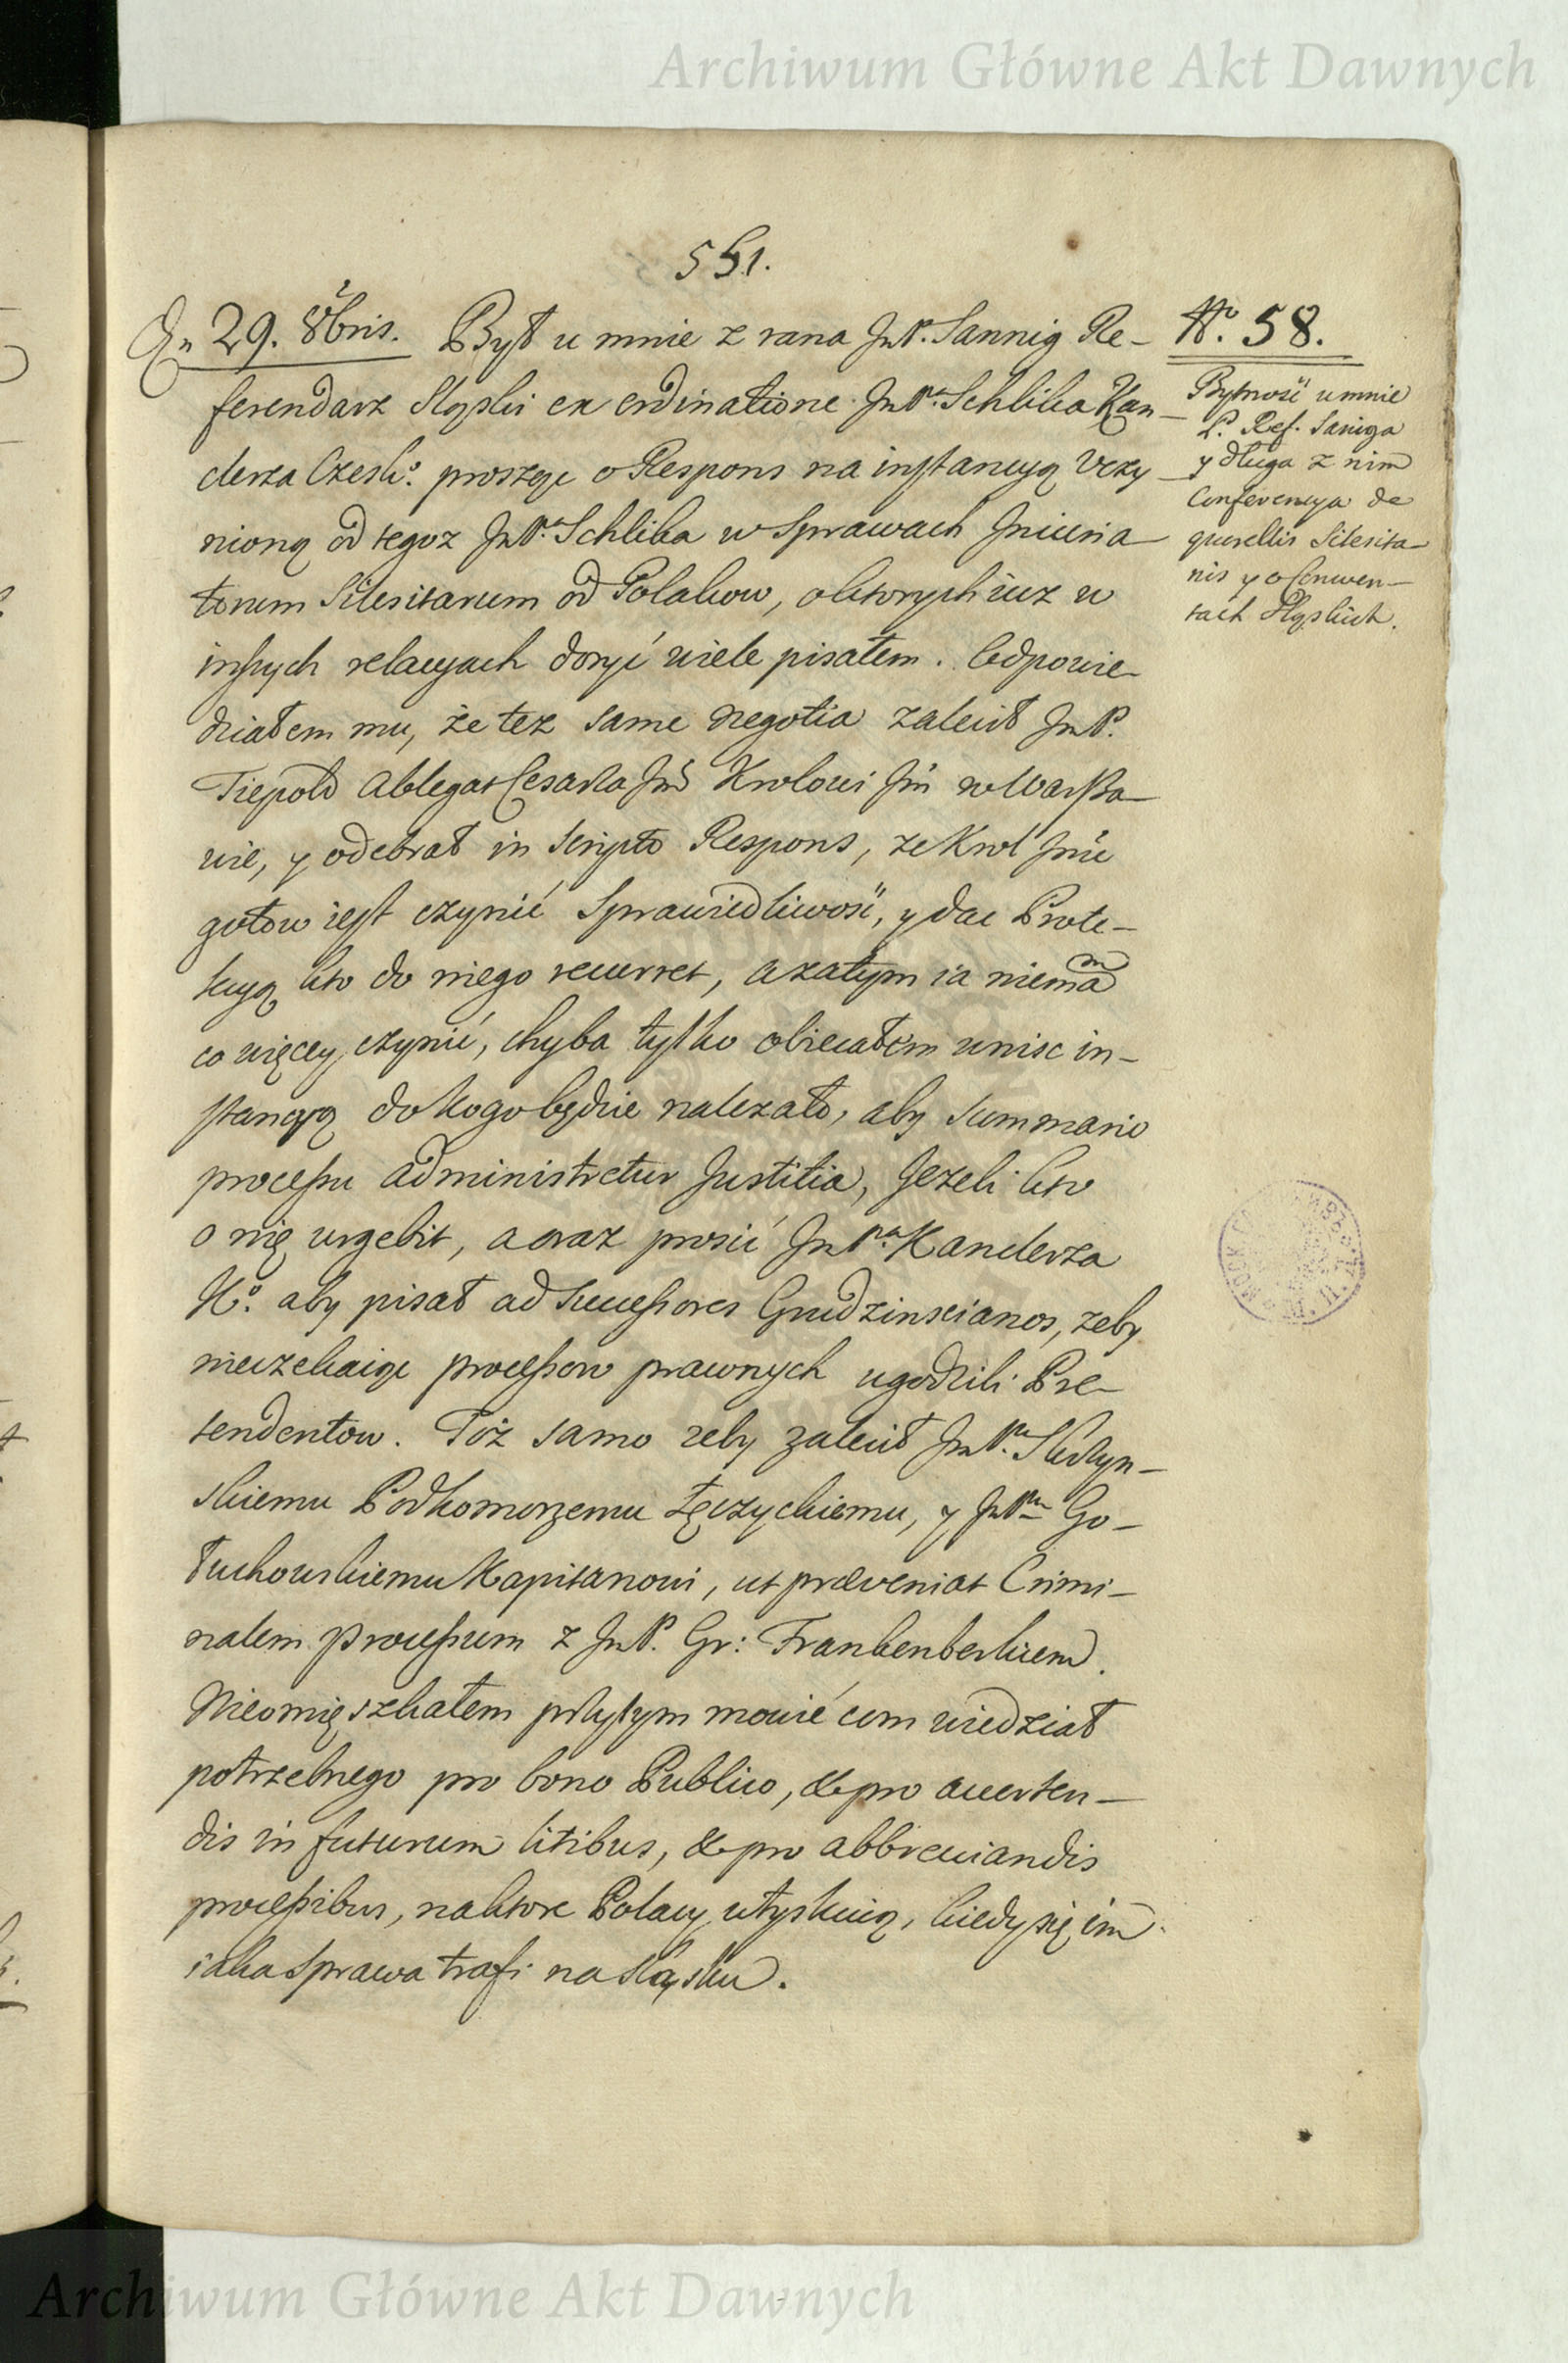 Archiwum Główne Akt Dawnych
551.
Dn 29. 8bris. Był u mnie z rana JmP. Sannig Re-
ferendarz Sląski ex ordinatione JmPa Schlika Kan-
clerza Czesko. prosząc o Respons na instancyą Uczy-
nioną od tegoz JmPa Schlika w Sprawach Iniuria-
torum Silesitarum od Polakow, o ktorych iuz w
inszych relacyach dosyć wiele pisałem. Odpowie-
działem mu, że tez same negotia zalecił JmP.
Tiepold Ablegat Cesarza Jmci Krolowi Jmci w Warsza-
wie, y odebrał in scripto Respons, ze Krol Jmć
gotow iest czynić Sprawiedliwość, y dac Prote-
kcyą kto do niego recurret, a zatym ia niemam
co więcey czynić, chyba tylko obiecałem wnisc in-
stancyą do kogo będzie nalezało, aby summario
processu administretur Justitia, Jezeli kto
o nię urgebit, a oraz prosić JmPa Kanclerza
Ko. aby pisał ad Successores Grudzinscianos, zeby
nieczekaiąc processow prawnych ugodzili Pre-
tendentow. Toż samo zeby zalecił JmPu Skrzyn-
skiemu Podkomorzemu Łęczyckiemu, y JmPu Go-
łuchowskiemu Kapitanowi, ut præveniat Crimi-
nalem processum z JmP. Gr: Frankenberkiem.
Nieomięszkałem przytym mowić com wiedział
potrzebnego pro bono Publico, & pro averten-
dis in futurum litibus, & pro abbreviandis
processibus, na ktore Polacy utyskuią, kiedy się im
iaka Sprawa trafi na Sląsku.
No. 58.
Bytność u mnie
P. Ref. Saniga
y długa z nim
Conferencya de
querellis Silesita-
nis y o Conwen-
tach Sląskich.
Archiwum Główne Akt Dawnych